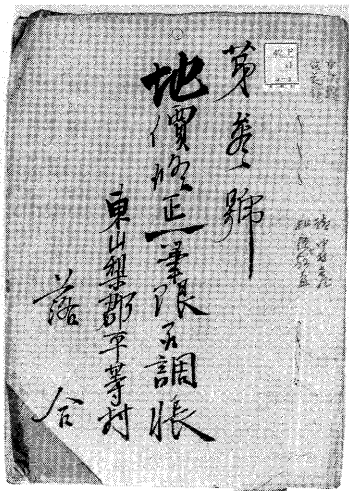 第参號
地價修正一筆限名調帳
東山梨郡平等村
落合